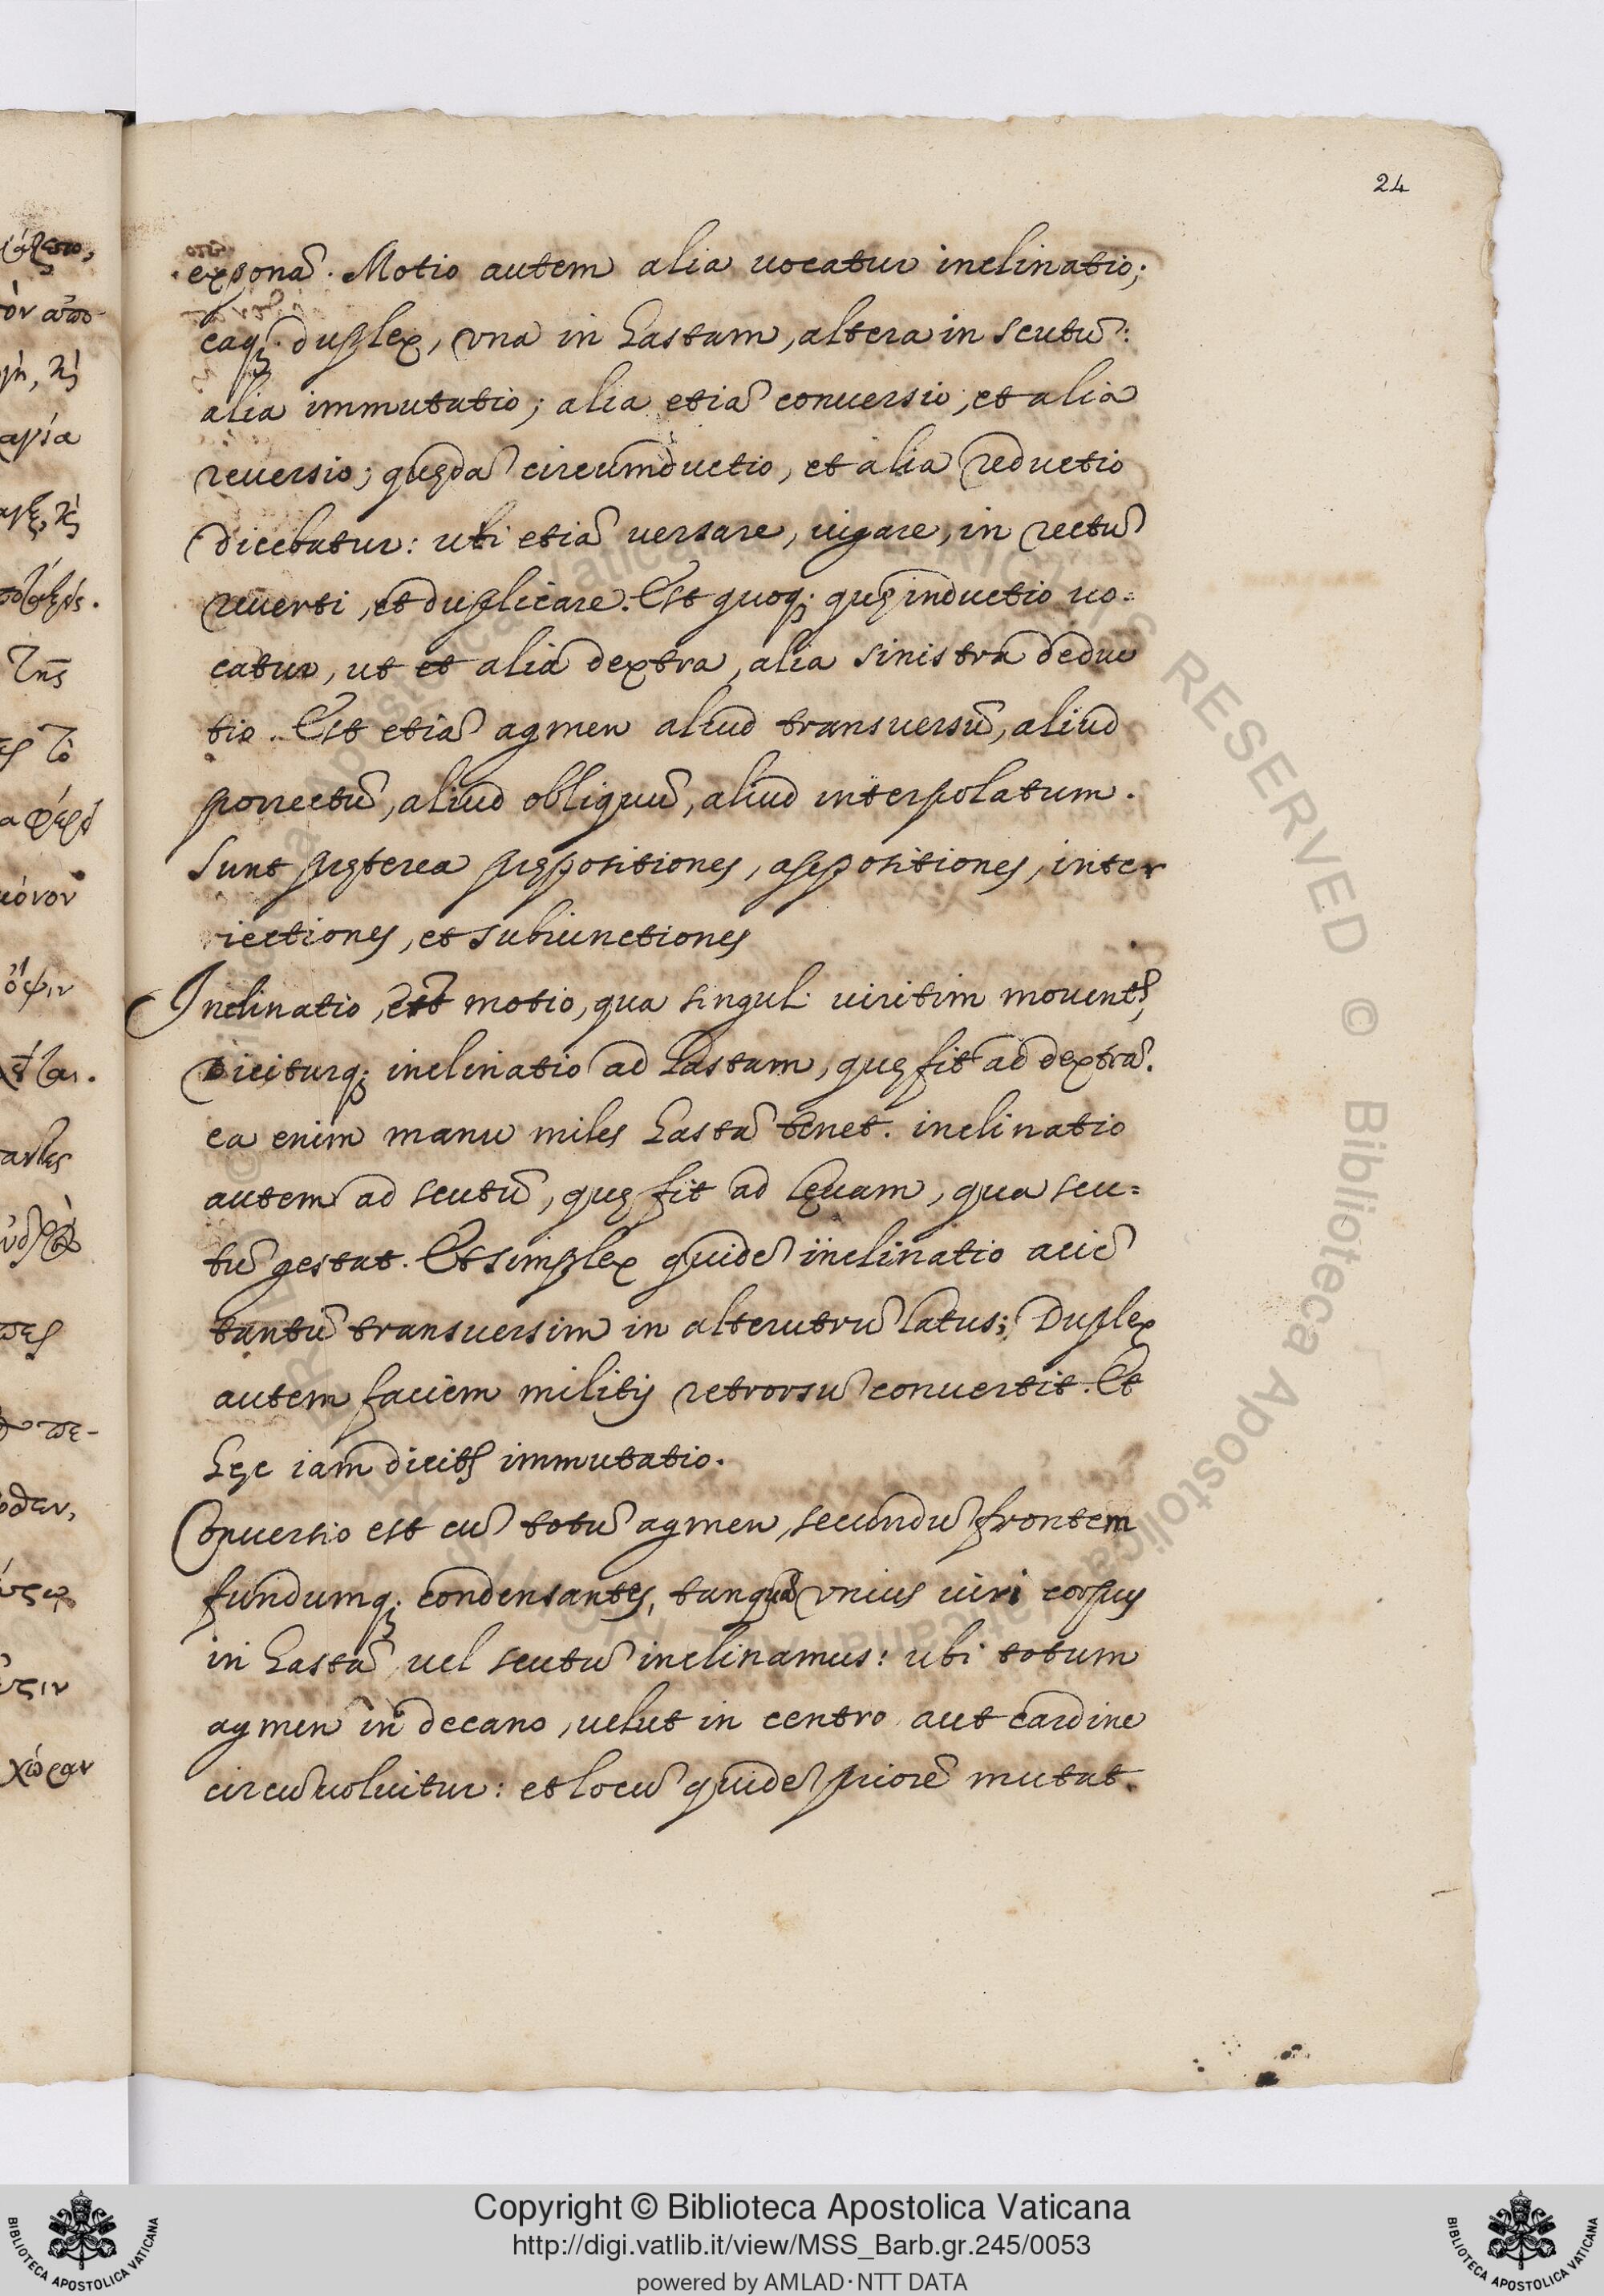 24
exponā. Motio autem alia uocatur inclinatio;
eaq; duplex, vna in hastam, altera in scutū:
alia immutatio; alia etiā conuersio, et alia
reuersio; quędā circumductio, et alia reductio
dicebatur: ubi etiā versare, iugare, in rectū
reuerti, et duplicare. Est quoq; quę inductio uo=
catur, ut et alia dextra, alia sinistra deduc
tio. Est etiā agmen aliud transuersū, aliud
porrectū, aliud obliquū, aliud interpolatum.
Sunt pręterea prępositiones, appositiones, inter
iectiones, et subiunctiones
Inclinatio, est motio, qua singuli uiritim mouent,
diciturq; inclinatio ad hastam, quę fit ad dextrā.
ea enim manu miles hastā tenet. inclinatio
autem ad scutū, quę fit ad lęuam, qua scu=
tū gestat. Et simplex quidē inclinatio aciē
tantū transuersim in alterutrū latus; Duplex
autem faciem militis retrorsū conuertit. Et
hęc iam dicit immutatio.
Conuersio est cū totū agmen, secundū frontem
fundumq; condensantes, tanquā vnius uiri corpus
in hastā, uel scutū inclinamus: ubi totum
agmen in decano, uelut in centro aut cardine
circūuoluitur: et locū quidē priorē mutat.
ὄψιν
μόνον
χώραν
© Biblioteca Apostolica Vaticana ALL RIGHTS RESERVED
Copyright © Biblioteca Apostolica Vaticana
http://digi.vatlib.it/view/MSS_Barb.gr.245/0053
powered by AMLAD·NTT DATA
BIBLIOTECA APOSTOLICA VATICANA
BIBLIOTECA APOSTOLICA VATICANA